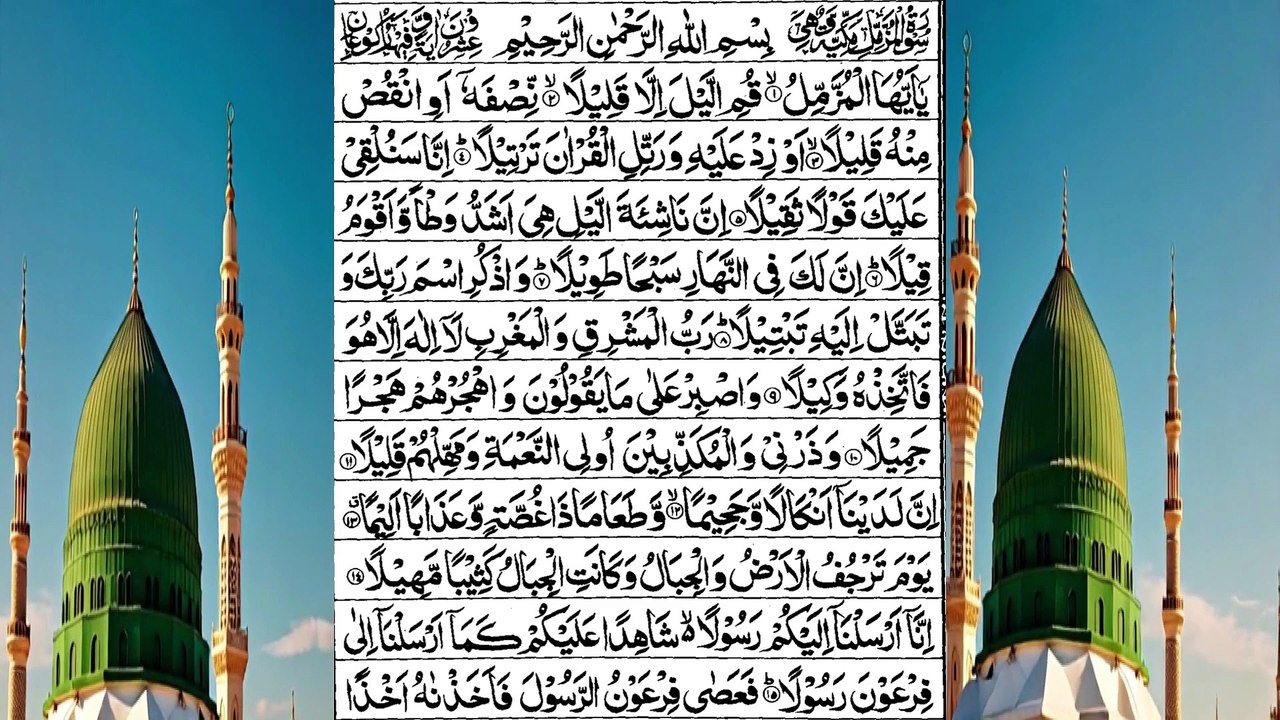 سُوْرَةُ الْمُزَّمِّلِ مَكِّيَّةٌ وَّهِيَ بِسْمِ اللهِ الرَّحْمٰنِ الرَّحِيْمِ عِشْرُوْنَ اٰيَةً وَّفِيْهَا رُكُوْعَانِ
يٰۤاَيُّهَا الْمُزَّمِّلُ ۙ﴿۱﴾ قُمِ الَّيْلَ اِلَّا قَلِيْلًا ۙ﴿۲﴾ نِّصْفَهٗۤ اَوِ انْقُصْ
مِنْهُ قَلِيْلًا ۙ﴿۳﴾ اَوْ زِدْ عَلَيْهِ وَرَتِّلِ الْقُرْاٰنَ تَرْتِيْلًا ؕ﴿۴﴾ اِنَّا سَنُلْقِيْ
عَلَيْكَ قَوْلًا ثَقِيْلًا ﴿۵﴾ اِنَّ نَاشِئَةَ الَّيْلِ هِيَ اَشَدُّ وَطْاً وَّاَقْوَمُ
قِيْلًا ؕ﴿۶﴾ اِنَّ لَكَ فِي النَّهَارِ سَبْحًا طَوِيْلًا ؕ﴿۷﴾ وَاذْكُرِ اسْمَ رَبِّكَ وَ
تَبَتَّلْ اِلَيْهِ تَبْتِيْلًا ؕ﴿۸﴾ رَبُّ الْمَشْرِقِ وَالْمَغْرِبِ لَاۤ اِلٰهَ اِلَّا هُوَ
فَاتَّخِذْهُ وَكِيْلًا ﴿۹﴾ وَاصْبِرْ عَلٰى مَا يَقُوْلُوْنَ وَاهْجُرْهُمْ هَجْرًا
جَمِيْلًا ﴿۱۰﴾ وَذَرْنِيْ وَالْمُكَذِّبِيْنَ اُولِي النَّعْمَةِ وَمَهِّلْهُمْ قَلِيْلًا ﴿۱۱﴾
اِنَّ لَدَيْنَاۤ اَنْكَالًا وَّجَحِيْمًا ۙ﴿۱۲﴾ وَّطَعَامًا ذَا غُصَّةٍ وَّعَذَابًا اَلِيْمًا ۗ﴿۱۳﴾
يَوْمَ تَرْجُفُ الْاَرْضُ وَالْجِبَالُ وَكَانَتِ الْجِبَالُ كَثِيْبًا مَّهِيْلًا ﴿۱۴﴾
اِنَّاۤ اَرْسَلْنَاۤ اِلَيْكُمْ رَسُوْلًا ۙ۬ شَاهِدًا عَلَيْكُمْ كَمَاۤ اَرْسَلْنَاۤ اِلٰى
فِرْعَوْنَ رَسُوْلًا ؕ﴿۱۵﴾ فَعَصٰى فِرْعَوْنُ الرَّسُوْلَ فَاَخَذْنٰهُ اَخْذًا